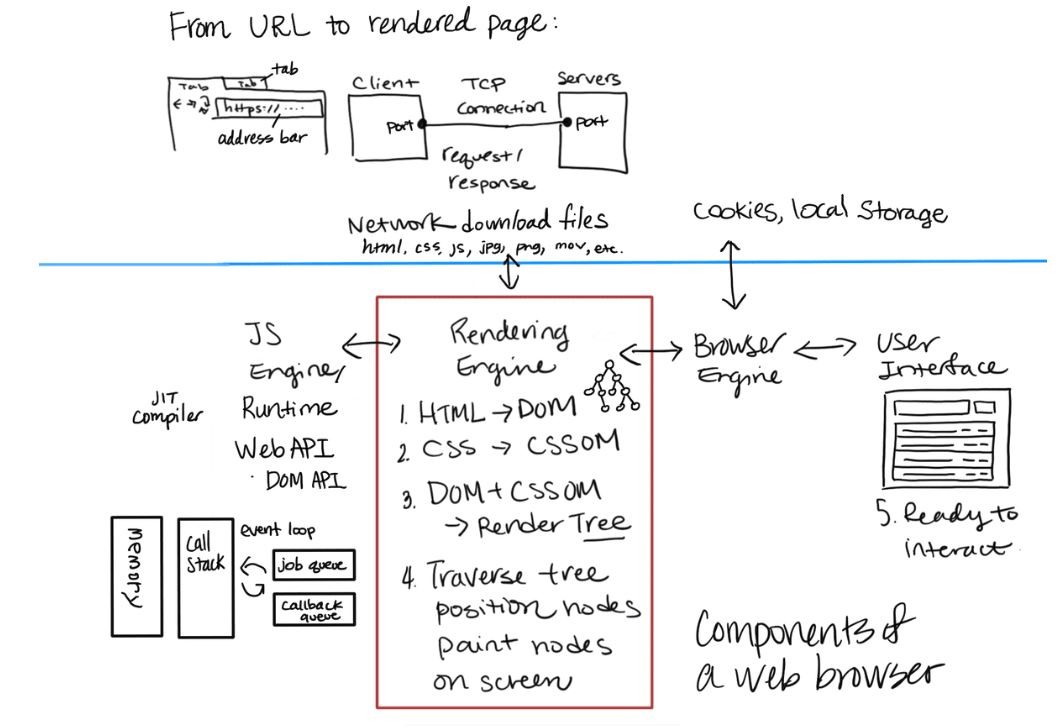 From URL to rendered page:
tab
Tab
Tab
https://....
address bar
Client
TCP
Connection
Servers
port
port
request/
response
Network download files
html, css, js, jpg, png, mov, etc.
Cookies, local Storage
JS
Engine/
Runtime
Web API
· DOM API
JIT
compiler
memory
call
stack
event loop
job queue
callback
queue
Rendering
Engine
1. HTML → DOM
2. CSS → CSSOM
3. DOM + CSSOM
→ Render Tree
4. Traverse tree
position nodes
paint nodes
on screen
Browser
Engine
User
Interface
5. Ready to
interact
Components of
a web browser